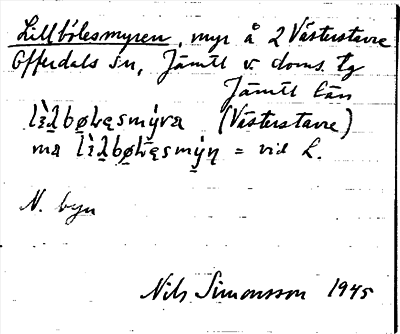 Lillbölesmyren, myr å 2 Västerstavre
Offerdals sn, Jämtl v. doms. tg
Jämtl län
lìlbølesmýra (Västerstavre)
ma lìlbølesmýn = vid L.
N. byn
Nils Simonsson 1945